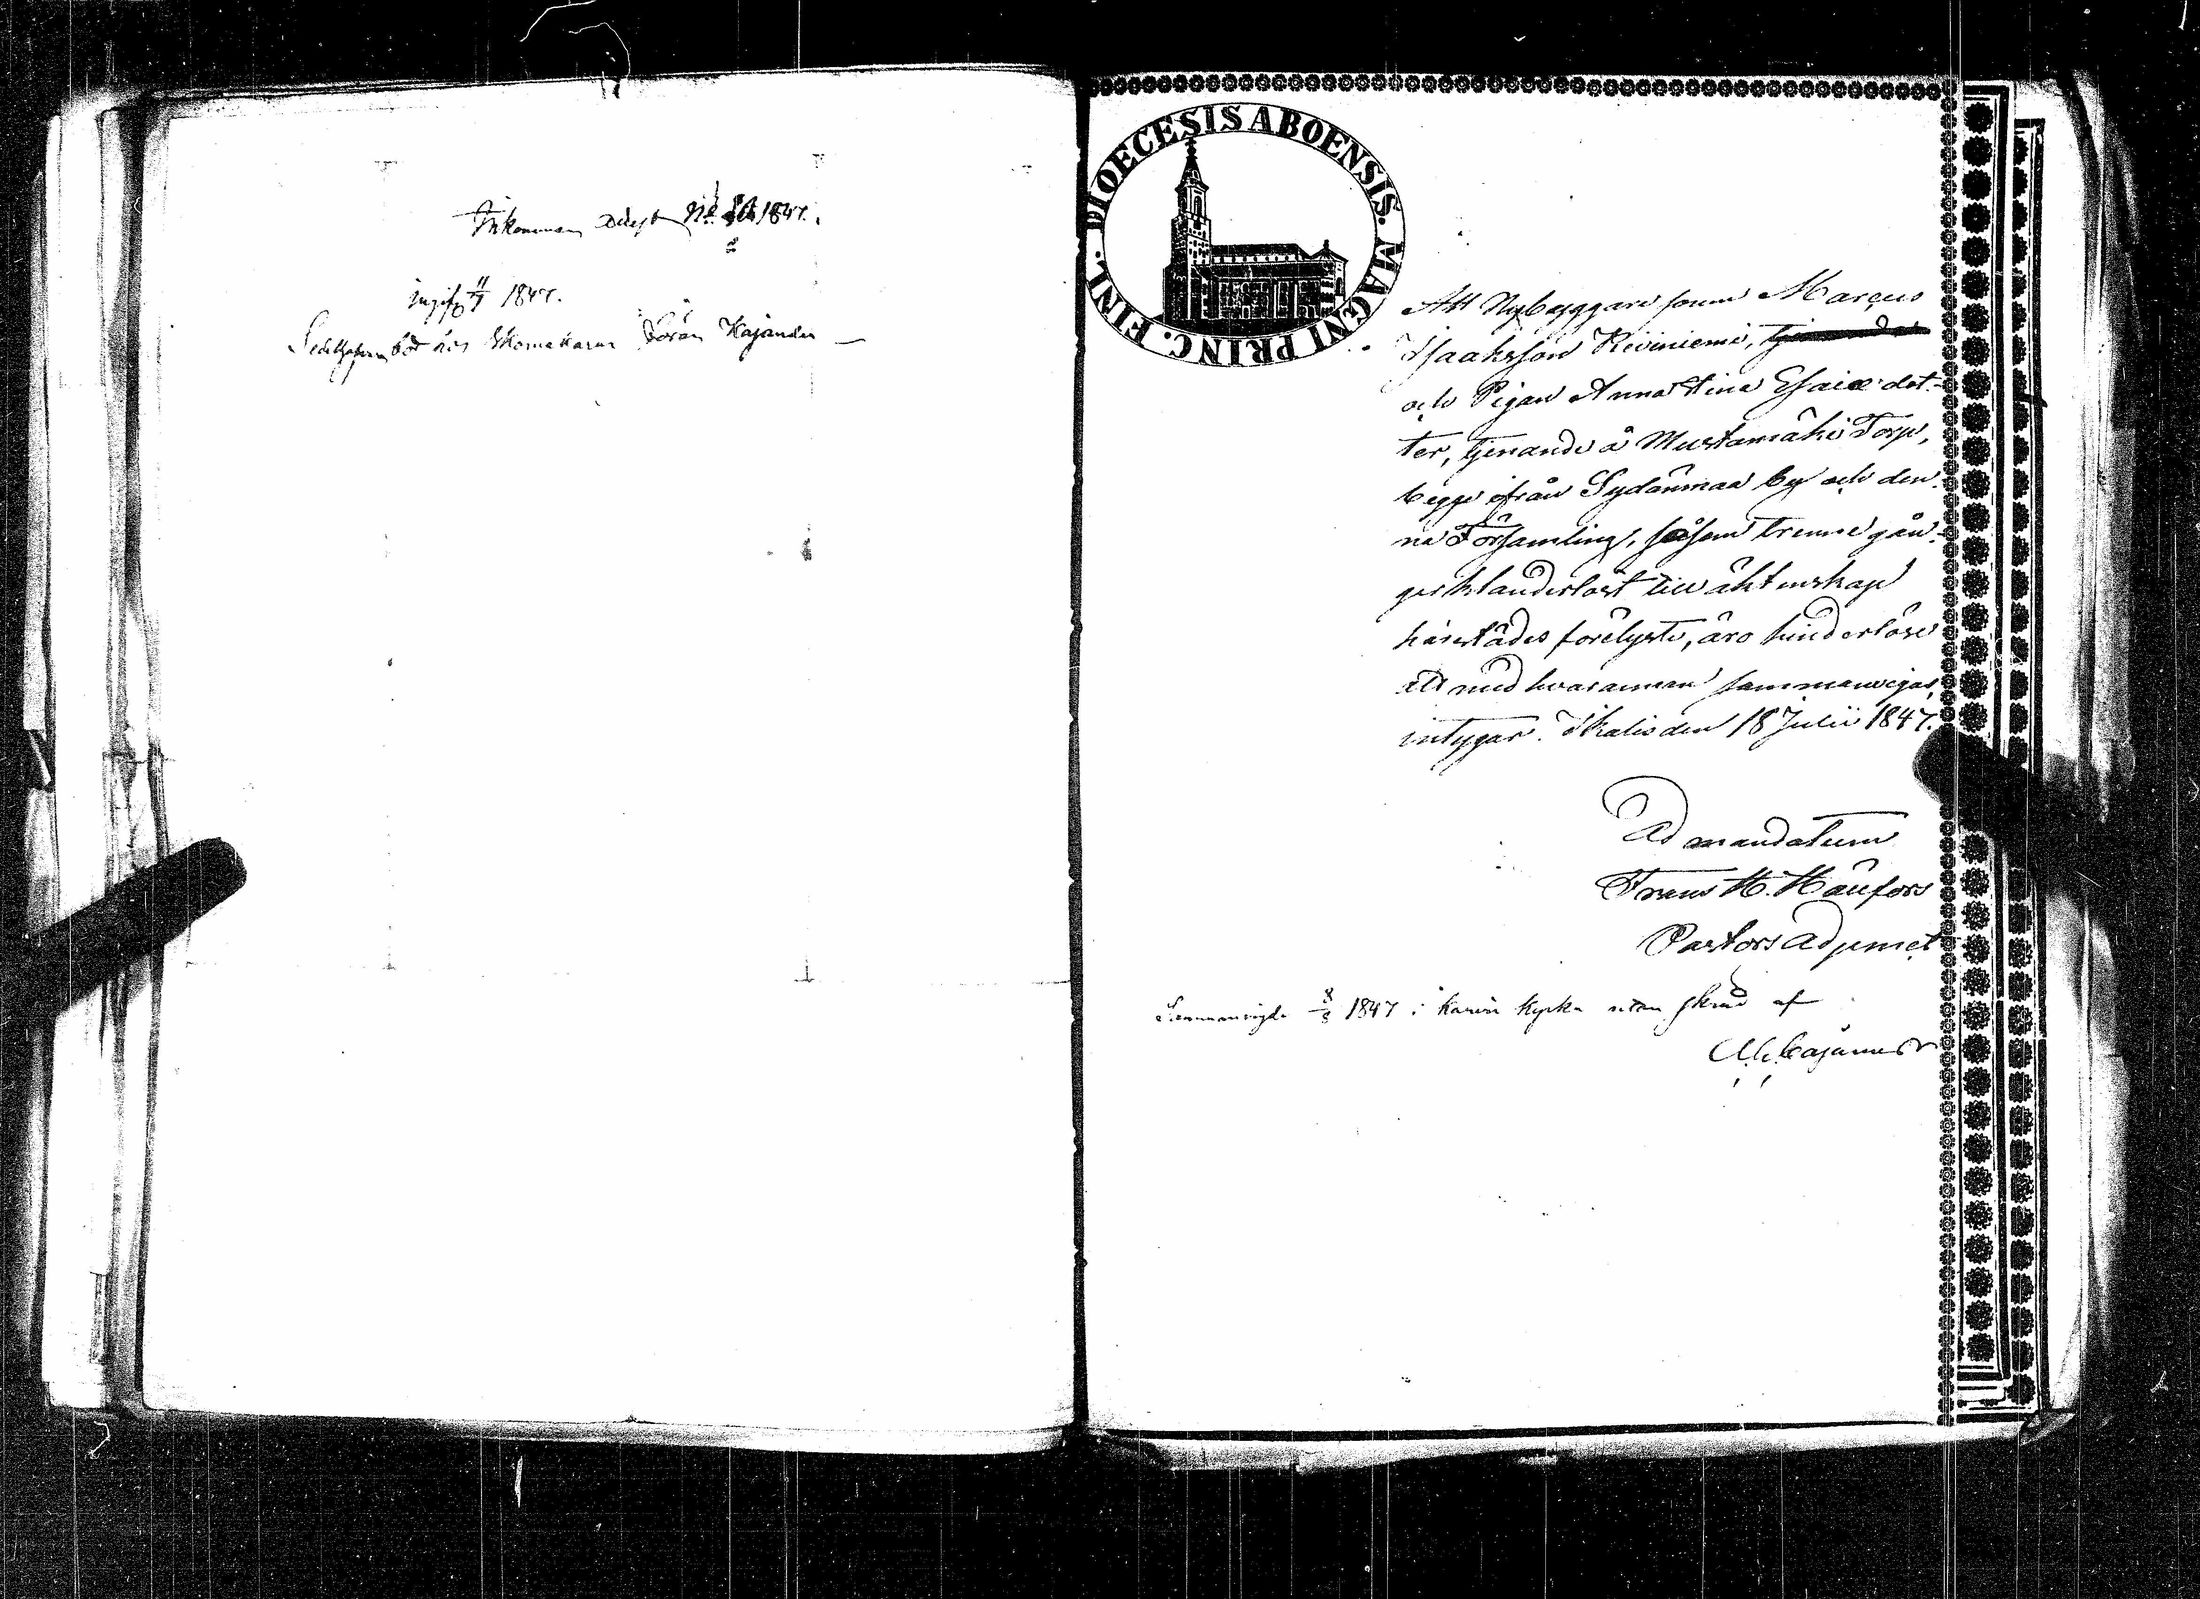 Inkommen
ingift 11/7 1847.
bor hos Skomakaren Göran Kajander
DIOECESIS ABOENSIS. MAGNI PRINC. FINL.
Att Nybyggare sonen Marcus
Isaaksson Reiviniemi,
och Pigan Anna Stina Esaiæ dot-
ter, tjenande å Mustamäki Torp,
begge ifrån Sydänmaa by och den-
na Församling, såsom trenne gån-
ger klanderlöst till äktenskap
härstädes förelyste, äro hinderlöse
att med hvarannan sammanvigas,
intygar. Ikalis den 18 Julii 1847.
Ad mandatum
Frans H. Häufors
Pastors Adjunct
Sammanvigde 8/8 1847 i Karvia Kyrka utan skrud af